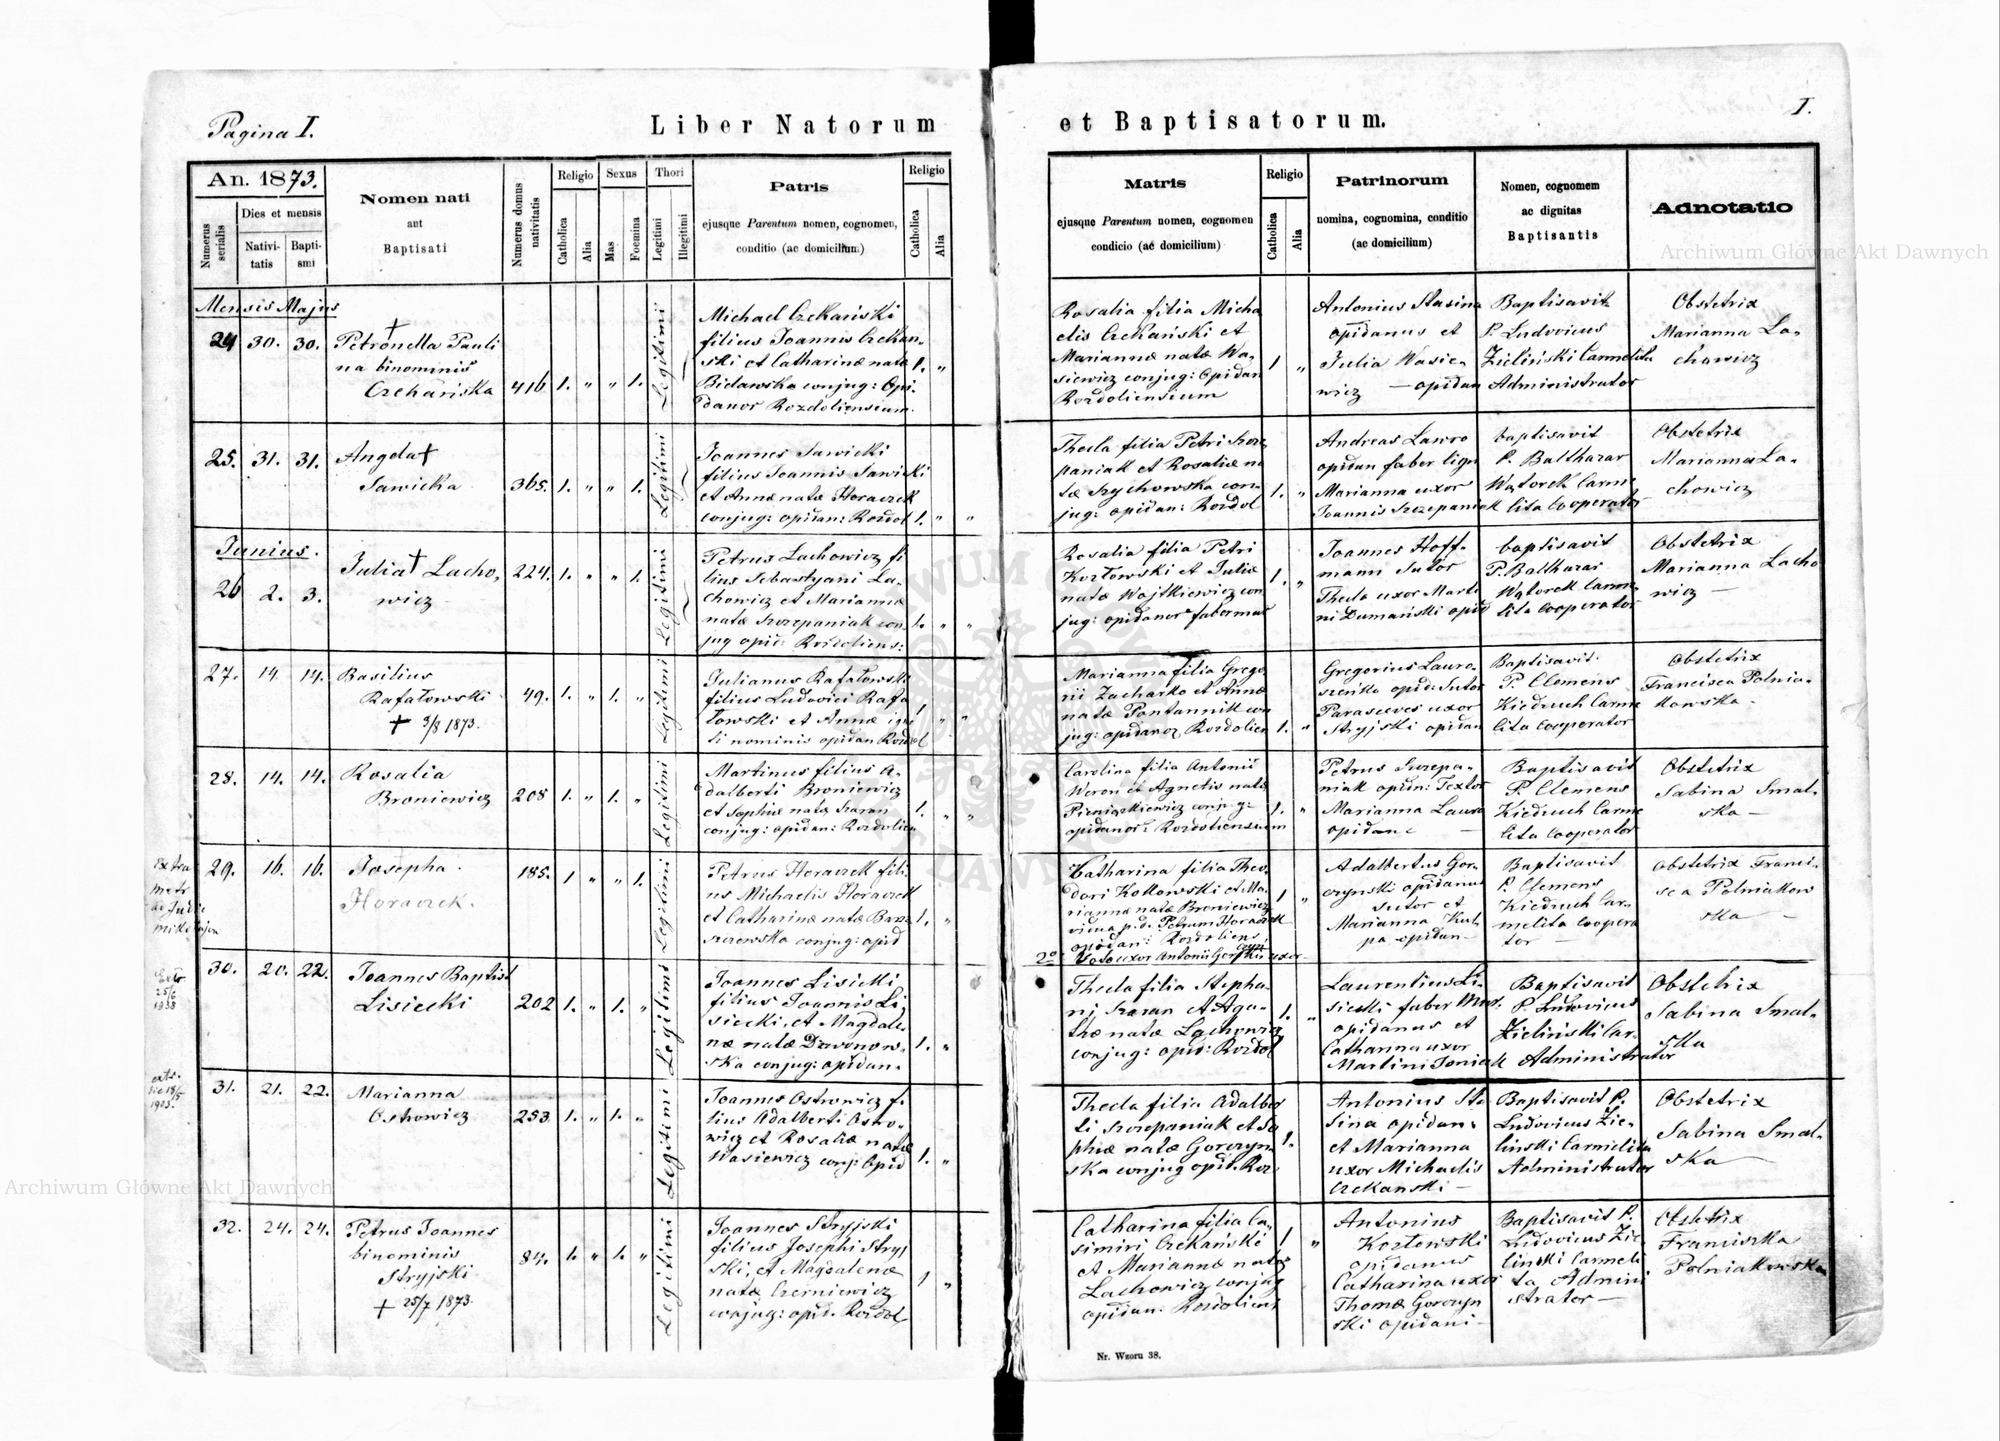 Pagina I.
Liber Natorum
et Baptisatorum.
I.
An. 1873.
Numerus serialis
Dies et mensis
Nativitatis
Baptismi
Nomen nati
aut
Baptisati
Numerus domus nativitatis
Religio
Catholica
Alia
Sexus
Mas
Foemina
Thori
Legitimi
Illegitimi
Patris
ejusque Parentum nomen, cognomen,
conditio (ac domicilium)
Religio
Catholica
Alia
Matris
ejusque Parentum nomen, cognomen
condicio (ac domicilium)
Religio
Catholica
Alia
Patrinorum
nomina, cognomina, conditio
(ac domicilium)
Nomen, cognomen
ac dignitas
Baptisantis
Adnotatio
Archiwum Główne Akt Dawnych
Mensis Majus
24 30. 30.
Petronella Pauli
na binominis
Czekańska
416 1. " " 1.
Legitimi
Michael Czekański
filius Joannis Czekań-
ski et Catharinæ natæ
Bielawska conjug: Opi-
danor Rozdoliensium.
1. "
Rosalia filia Micha
elis Czekański et
Mariannæ natæ Wa-
siewicz conjug: Opidan
Rozdoliensium
1 "
Antonius Stasina
opidanus et
Julia Wasie-
wicz — opidan
Baptisavit
P. Ludovicus
Zieliński Carmelita
Administrator
Obstetrix
Marianna La-
chowicz
25. 31. 31.
Angela †
Sawicka
365. 1. " " 1.
Legitimi
Joannes Sawicki
filius Joannis Sawicki
et Annæ natæ Horaczek
conjug: opidan: Rozdol
1. " "
Thecla filia Petri Szcze
paniak et Rosaliæ na
tæ Szychowska con
jug: opidan: Rozdol
1. "
Andreas Lawro
opidan faber lign
Marianna uxor
Joannis Szczepaniak
baptisavit
P. Balthazar
Wątorek Carme
lita Cooperator
Obstetrix
Marianna La-
chowicz
Junius.
26 2. 3.
Julia † Lacho,
wicz
224. 1. " " 1.
Legitimi
Petrus Lachowicz fi
lius Sebastyani La-
chowicz et Mariannæ
natæ Szczepaniak con
jug opid: Rozdoliens:
1. " "
Rosalia filia Petri
Kozłowski et Juliæ
natæ Wojtkiewicz con
jug: opidanor fabermur
1. "
Joannes Hoff-
mann Sutor
Thecla uxor Marti
ni Dumański opid
baptisavit
P. Balthazar
Wątorek Carme
lita Cooperator
Obstetrix
Marianna Lacho
wicz —
27. 14. 14.
Basilius
Rafałowski
† 3/8 1873.
49. 1. " 1. "
Legitimi
Julianus Rafałowski
filius Ludovici Rafa
łowski et Annæ
nominis opidan Rozdol
1 " "
Marianna filia Grego
rii Zacharko et Annæ
natæ Pantannik con
jug: opidanor Rozdolien
1. "
Gregorius Lawro-
opid: Sutor
Parasceves uxor
Stryjski opidan
Baptisavit.
P. Clemens
Kiedruch Carme
lita Cooperator
Obstetrix
Francisca Polnia-
kowska.
28. 14. 14.
Rosalia
Broniewicz
208 1. " 1. "
Legitimi
Martinus filius A-
dalberti Broniewicz
et Sophiæ natæ Szaran
conjug: opidan: Rozdolien
1. " "
Carolina filia Antonii
Weron et Agnetis natæ
Pieniążkiewicz conjug:
opidanor: Rozdoliensium
1. "
Petrus Szczepa-
niak opidn: Textor
Marianna Lawro
opidan
Baptisavit
P. Clemens
Kiedruch Carme
lita Cooperator
Obstetrix
Sabina Smal-
ska —
Extra
metr
29. 16. 16.
Josepha
Horaczek.
185. 1 " " 1.
Legitimi
Petrus Horaczek fili-
us Michaelis Horaczek
et Catharinæ natæ Barsz
szczewska conjug: opid
1. "
Catharina filia Theo
dori Kolkowski et Ma-
riannæ natæ Broniewicz
vidua p.d. Petrum Horaczek
opidan: Rozdoliens.
1 "
Adalbertus Gor-
czynski opidanus
Sutor et
Marianna
opidan—
Baptisavit
P. Clemens
Kiedruch Car-
melita coopera
tor —
Obstetrix Franci-
sca Polniakow
ska —
25/6
1938
30. 20. 22.
Joannes Baptist
Lisiecki
202 1. " 1. "
Legitimi
Joannes Lisiecki
filius Joannis Li
siecki, et Magdale-
næ natæ Dzwonow-
ska conjug: opidan-
1. "
Thecla filia Stepha-
ni Szaran et Aga-
thæ natæ Lachowicz
conjug: opid: Rozdol
1. "
Laurentius Li-
siecki faber Mur.
opidanus et
Catharina uxor
Martini Toniak
Baptisavit
P. Ludovicus
Zieliński Car.
Administrator
Obstetrix
Sabina Smal-
ska
1903.
31. 21. 22.
Marianna
Ostrowicz
253 1. " 1. "
Legitimi
Joannes Ostrowicz fi-
lius Adalberti Ostro-
wicz et Rosaliæ natæ
Wasiewicz conj: Opid
1. "
Thecla filia Adalber
ti Szczepaniak et So
phiæ natæ Gorczyn
ska conjug opid: Roz
1.
Antonius Sta
sina opidan:
et Marianna
uxor Michaelis
Czekanski —
Baptisavit P.
Ludovicus Zie-
linski Carmelita
Administrator
Obstetrix
Sabina Smal-
ska —
32. 24. 24.
Petrus Joannes
binominis
Stryjski
† 25/7 1873.
84. 1. " 1. "
Legitimi
Joannes Stryjski
filius Josephi Stryj
ski, et Magdalenæ
natæ Czerniewicz
conjug: opid. Rozdol
1 "
Catharina filia Ca-
simiri Czekański
et Mariannæ natæ
Lachowicz conjug
opidan: Rozdoliens
1 "
Antonius
Kozłowski
opidanus
Catharina uxor
Thomæ Gorczyn
ski opidani —
Baptisavit P.
Ludovicus Zie
linski Carmeli
ta Admini
strator —
Obstetrix
Franciszka
Polniakowska
Archiwum Główne Akt Dawnych
Nr. Wzoru 38.